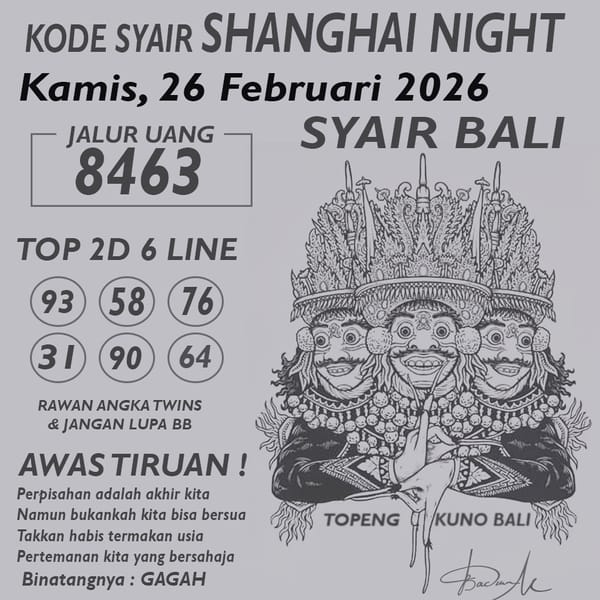 KODE SYAIR SHANGHAI NIGHT
Kamis, 26 Februari 2026
SYAIR BALI
JALUR UANG
8463
TOP 2D 6 LINE
93 58 76
31 90 64
RAWAN ANGKA TWINS
& JANGAN LUPA BB
AWAS TIRUAN !
Perpisahan adalah akhir kita
Namun bukankah kita bisa bersua
Takkan habis termakan usia
Pertemanan kita yang bersahaja
Binatangnya : GAGAH
TOPENG KUNO BALI